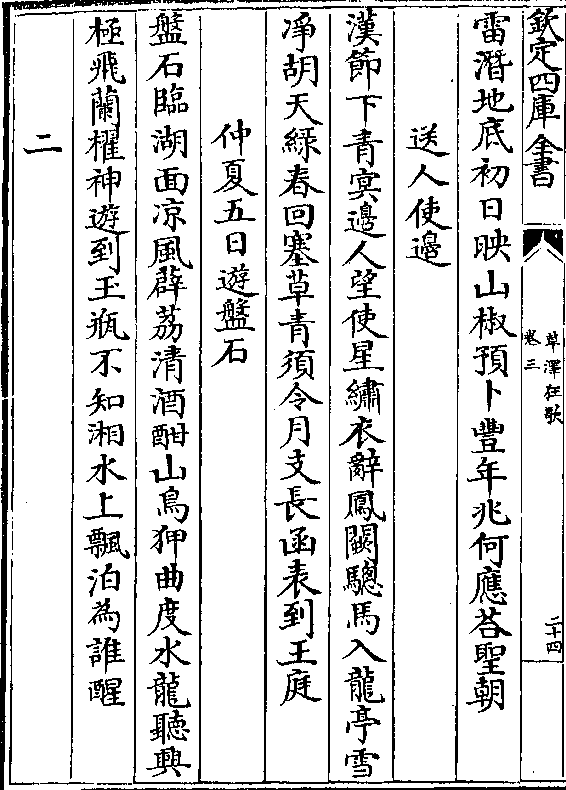 欽定四庫全書
草澤狂歌
卷三
二十四
雷潛地底初日映山椒預卜豐年兆何應荅聖朝
送人使邊
漢節下青㝠邊人望使星繡衣辭鳳闕驄馬入龍亭雪
凈胡天綠春回塞草青須令月支長函表到王庭
仲夏五日遊盤石
盤石臨湖面凉風辟荔清酒酣山鳥狎曲度水龍聽興
極飛蘭櫂神遊到玉瓶不知湘水上飄泊為誰醒
二